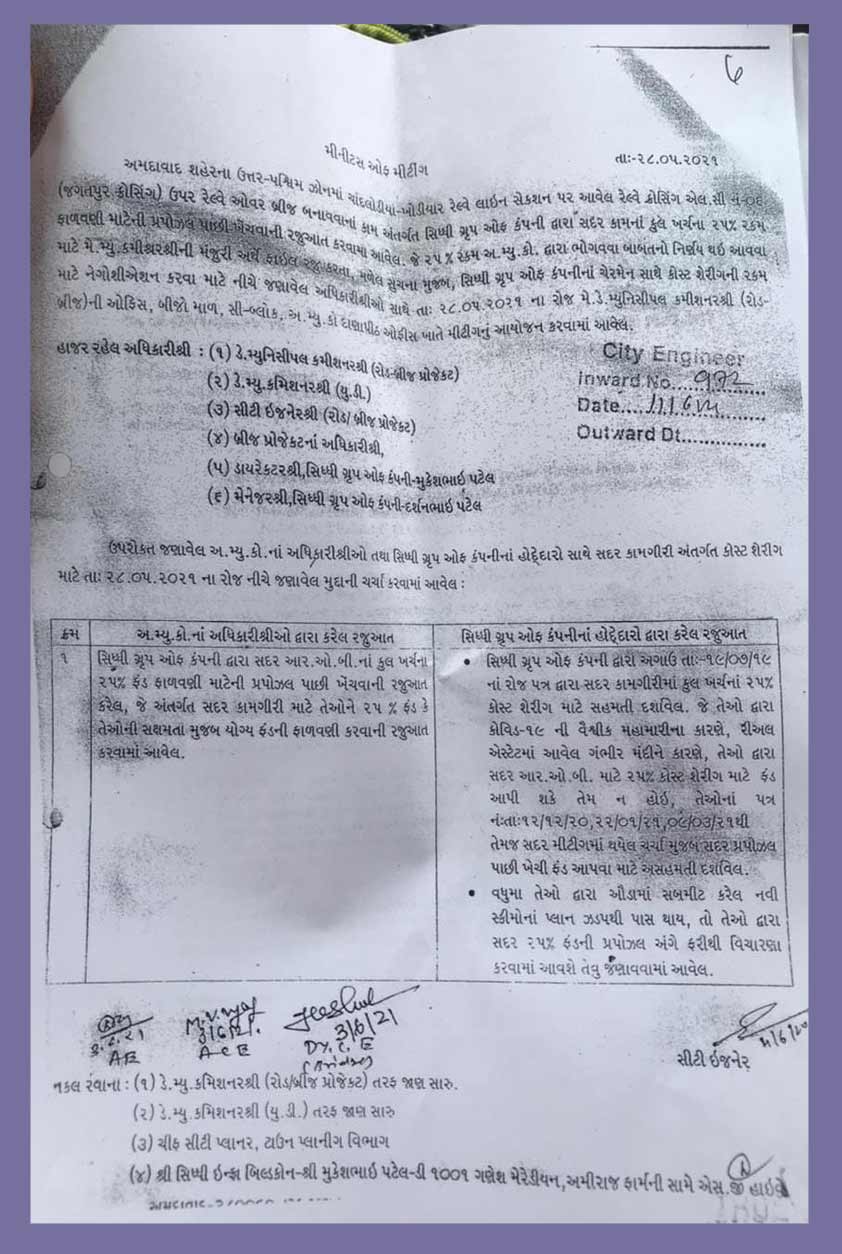 6
મીનીટસ ઓફ મીટીંગ
તાઃ-૨૮.૦૫.૨૦૨૧
અમદાવાદ શહેરના ઉત્તર-પશ્ચિમ ઝોનમાં ચાંદલોડીયા-ખોડીયાર રેલ્વે લાઇન સેકશન પર આવેલ રેલ્વે ક્રોસિંગ એલ.સી નં-૦૬
(જગતપુર ક્રોસિંગ) ઉપર રેલ્વે ઓવર બ્રીજ બનાવવાનાં કામ અંતર્ગત સિધ્ધી ગ્રૃપ ઓફ કંપની દ્વારા સદર કામનાં કુલ ખર્ચના ૨૫% રકમ
ફાળવણી માટેની પ્રપોઝલ પાછી ખેંચવાની રજુઆત કરવામાં આવેલ. જે ૨૫ % રકમ અ.મ્યુ.કો. દ્વારા ભોગવવા બાબતનો નિર્ણય થઇ આવવા
માટે મે.મ્યુ.કમીશ્નરશ્રીની મંજુરી અર્થે ફાઇલ રજુ કરતા, મળેલ સુચના મુજબ, સિધ્ધી ગ્રૃપ ઓફ કંપનીનાં ચેરમેન સાથે કોસ્ટ શેરીંગની રકમ
માટે નેગોશીએશન કરવા માટે નીચે જણાવેલ અધિકારીશ્રીઓ સાથે તાઃ ૨૮.૦૫.૨૦૨૧ ના રોજ મે.ડે.મ્યુનિસીપલ કમીશનરશ્રી (રોડ-
બ્રીજ)ની ઓફિસ, બીજો માળ, સી-બ્લોક, અ.મ્યુ.કો દાણાપીઠ ઓફીસ ખાતે મીટીંગનુ આયોજન કરવામાં આવેલ.
હાજર રહેલ અધિકારીશ્રી : (૧) ડે.મ્યુનિસીપલ કમીશનરશ્રી (રોડ-બ્રીજ પ્રોજેકટ)
(૨) ડે.મ્યુ.કમિશનરશ્રી (યુ.ડી.)
(૩) સીટી ઇજનેરશ્રી (રોડ/ બ્રીજ પ્રોજેકટ)
(૪) બ્રીજ પ્રોજેકટનાં અધિકારીશ્રી,
(૫) ડાયરેકટરશ્રી,સિધ્ધી ગ્રૃપ ઓફ કંપની-મુકેશભાઇ પટેલ
(૬) મેનેજરશ્રી,સિધ્ધી ગ્રૃપ ઓફ કંપની-દર્શનભાઇ પટેલ
City Engineer
Inward No....972
Date....
Outward Dt..............
ઉપરોકત જણાવેલ અ.મ્યુ.કો.નાં અધિકારીશ્રીઓ તથા સિધ્ધી ગ્રૃપ ઓફ કંપનીનાં હોદ્દેદારો સાથે સદર કામગીરી અંતર્ગત કોસ્ટ શેરીંગ
માટે તાઃ ૨૮.૦૫.૨૦૨૧ ના રોજ નીચે જણાવેલ મુદાની ચર્ચા કરવામાં આવેલ :
ક્રમ
અ.મ્યુ.કો.નાં અધિકારીશ્રીઓ દ્વારા કરેલ રજુઆત
સિધ્ધી ગ્રૃપ ઓફ કંપનીનાં હોદ્દેદારો દ્વારા કરેલ રજુઆત
૧
સિધ્ધી ગ્રૃપ ઓફ કંપની દ્વારા સદર આર.ઓ.બી.નાં કુલ ખર્ચના
૨૫% ફંડ ફાળવણી માટેની પ્રપોઝલ પાછી ખેંચવાની રજુઆત
કરેલ, જે અંતર્ગત સદર કામગીરી માટે તેઓને ૨૫ % ફંડ કે
તેઓની સક્ષમતા મુજબ યોગ્ય ફંડની ફાળવણી કરવાની રજુઆત
કરવામાં આવેલ.
• સિધ્ધી ગ્રૃપ ઓફ કંપની દ્વારા અગાઉ તાઃ-૧૯/૦૭/૧૯
નાં રોજ પત્ર દ્વારા સદર કામગીરીમાં કુલ ખર્ચનાં ૨૫%
કોસ્ટ શેરીંગ માટે સહમતી દર્શાવેલ. જે તેઓ દ્વારા
કોવિડ-૧૯ ની વૈશ્વીક મહામારીના કારણે, રીઅલ
એસ્ટેટમાં આવેલ ગંભીર મંદીને કારણે, તેઓ દ્વારા
સદર આર.ઓ.બી. માટે ૨૫% કોસ્ટ શેરીંગ માટે ફંડ
આપી શકે તેમ ન હોઇ, તેઓનાં પત્ર
નંતાઃ૧૨/૧૨/૨૦,૨૨/૦૧/૨૧,૦૯/૦૩/૨૧થી
તેમજ સદર મીટીંગમાં થયેલ ચર્ચા મુજબ સદર પ્રપોઝલ
પાછી ખેચી ફંડ આપવા માટે અસહમતી દર્શાવેલ.
• વધુમા તેઓ દ્વારા ઔડામાં સબમીટ કરેલ નવી
સ્કીમોનાં પ્લાન ઝડપથી પાસ થાય, તો તેઓ દ્વારા
સદર ૨૫% ફંડની પ્રપોઝલ અંગે ફરીથી વિચારણા
કરવામાં આવશે તેવુ જણાવવામાં આવેલ.
AE
3/6/21.
ACE
3/6/21
Dy. C. E
(Bridge)
સીટી ઇજનેર
નકલ રવાના : (૧) ડે.મ્યુ.કમિશનરશ્રી (રોડ/બ્રીજ પ્રોજેકટ) તરફ જાણ સારુ.
(૨) ડે.મ્યુ.કમિશનરશ્રી (યુ.ડી.) તરફ જાણ સારુ
(૩) ચીફ સીટી પ્લાનર, ટાઉન પ્લાનીગ વિભાગ
(૪) શ્રી સિધ્ધી ઇન્ફ્રા બિલ્ડકોન-શ્રી મુકેશભાઇ પટેલ-ડી ૧૦૦૧ ગણેશ મેરેડીયન,અમીરાજ ફાર્મની સામે એસ.જી હાઇવે